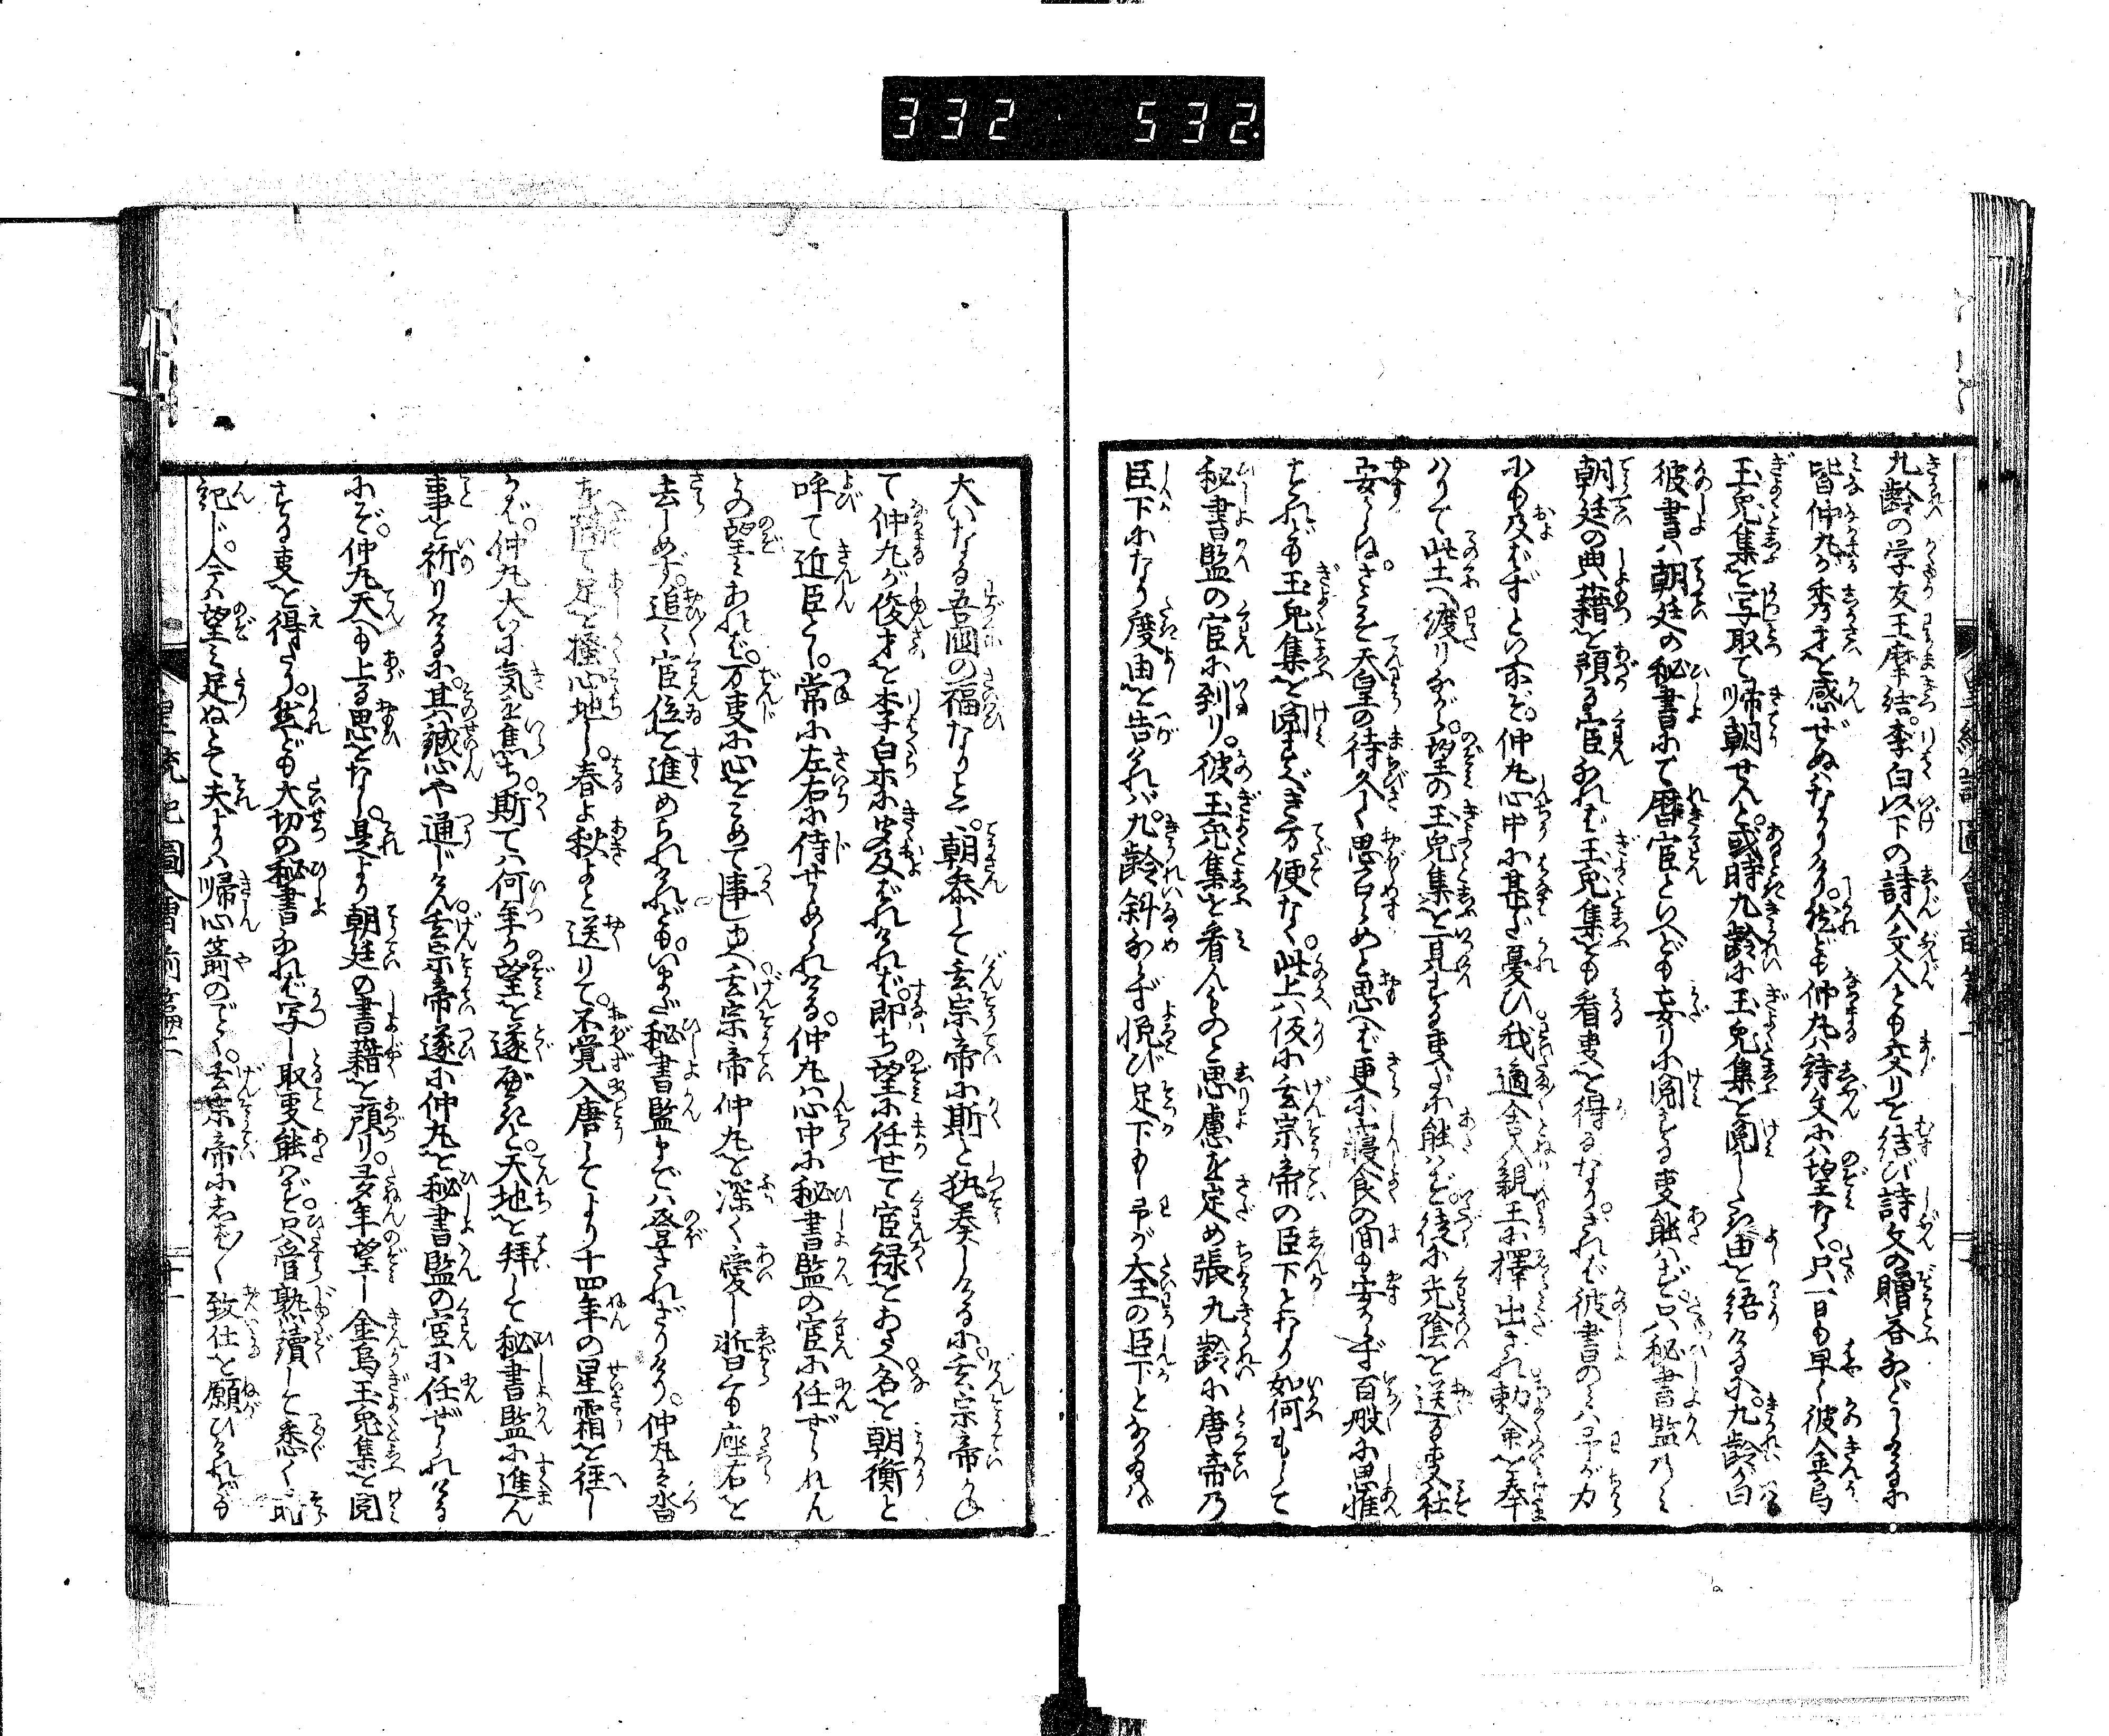 332 532
九齢の学友王摩結。李白以下の詩人文人とも交りを結び詩文の贈答などしけるに
皆仲丸が秀才を感ぜぬはなかりけり。然ども仲丸は詩文には望なく。只一日も早く彼金烏
玉兎集を写取て帰朝せんと。或時九齢に玉兎集を閲したき由を語けるに。九齢が曰
彼書は朝廷の秘書にて暦官といへども妄りに閲する事能はず。只秘書監のみ
朝廷の典籍を預る官なれば玉兎集をも看事を得るなり。されば彼書のみは吾が力
にも及ばずといふにぞ。仲丸心中に甚だ憂ひ我適舎人親王に択出され勅命を奉
はりて此土へ渡りながら。望の玉兎集を一見する事だに能はず徒に光陰を送る事社
安からね。さこそ天皇の待久しく思召らめと思へば更に寝食の間も安からず百般に思惟
すれども玉兎集を閲すべき方便なく。此上は仮に玄宗帝の臣下となり如何もして
秘書監の官に到り。彼玉兎集を看んものと思慮を定め張九齢に唐帝の
臣下になり度由を告ければ。九齢斜ならず悦び足下もし吾が大王の臣下となり給はゞ
大いなる吾国の福なりと。朝参して玄宗帝に斯と執奏しけるに。玄宗帝かね
て仲丸が俊才を李白等に聞及ばれければ。即ち望に任せて官禄をあたへ名を朝衡と
呼て近臣とし。常に左右に侍せしめられける。仲丸は心中に秘書監の官に任ぜられん
との望みあれば。万事に心をこめて事しゆへ。玄宗帝仲丸を深く愛し暫も座右を
去しめず。追々官位を進められけれども。いまだ秘書監までは登されざりけり。仲丸は沓
を隔て足を掻心地し。春よ秋よと送りて。不覚入唐してより十四年の星霜を経し
かば。仲丸大いに気を焦ち。斯ては何年か望を遂べきと。天地を拝して秘書監に進ん
事を祈りけるに。其誠心や通じけん。玄宗帝遂に仲丸を秘書監の官に任ぜられける
にぞ。仲丸天へも上る思をなし。是より朝廷の書籍を預り。多年望し金烏玉兎集を閲
する事を得たり。然ども大切の秘書なれば写し取事能はず。只管熟読して悉く諳
記じ。今は望み足ぬとて夫よりは帰心箭のごとく。玄宗帝にしば〳〵致仕を願ひけれども